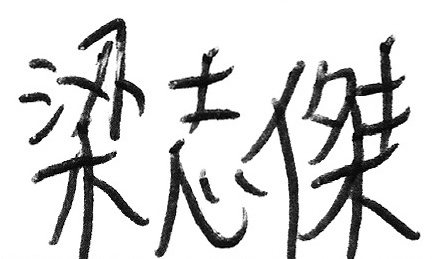 梁志傑